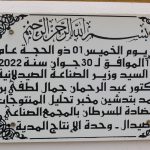 بسم الله الرحمن الرحيم
يوم الخميس 01 ذو الحجة
الموافق ل 30 جوان سنة 2022
السيد وزير الصناعة الصيدلانية
عبد الرحمان جمال لطفي
بتدشين مخبر تحليل المنتجات
للسرطان بالمجمع الصناعي
صيدال - وحدة الإنتاج المدية